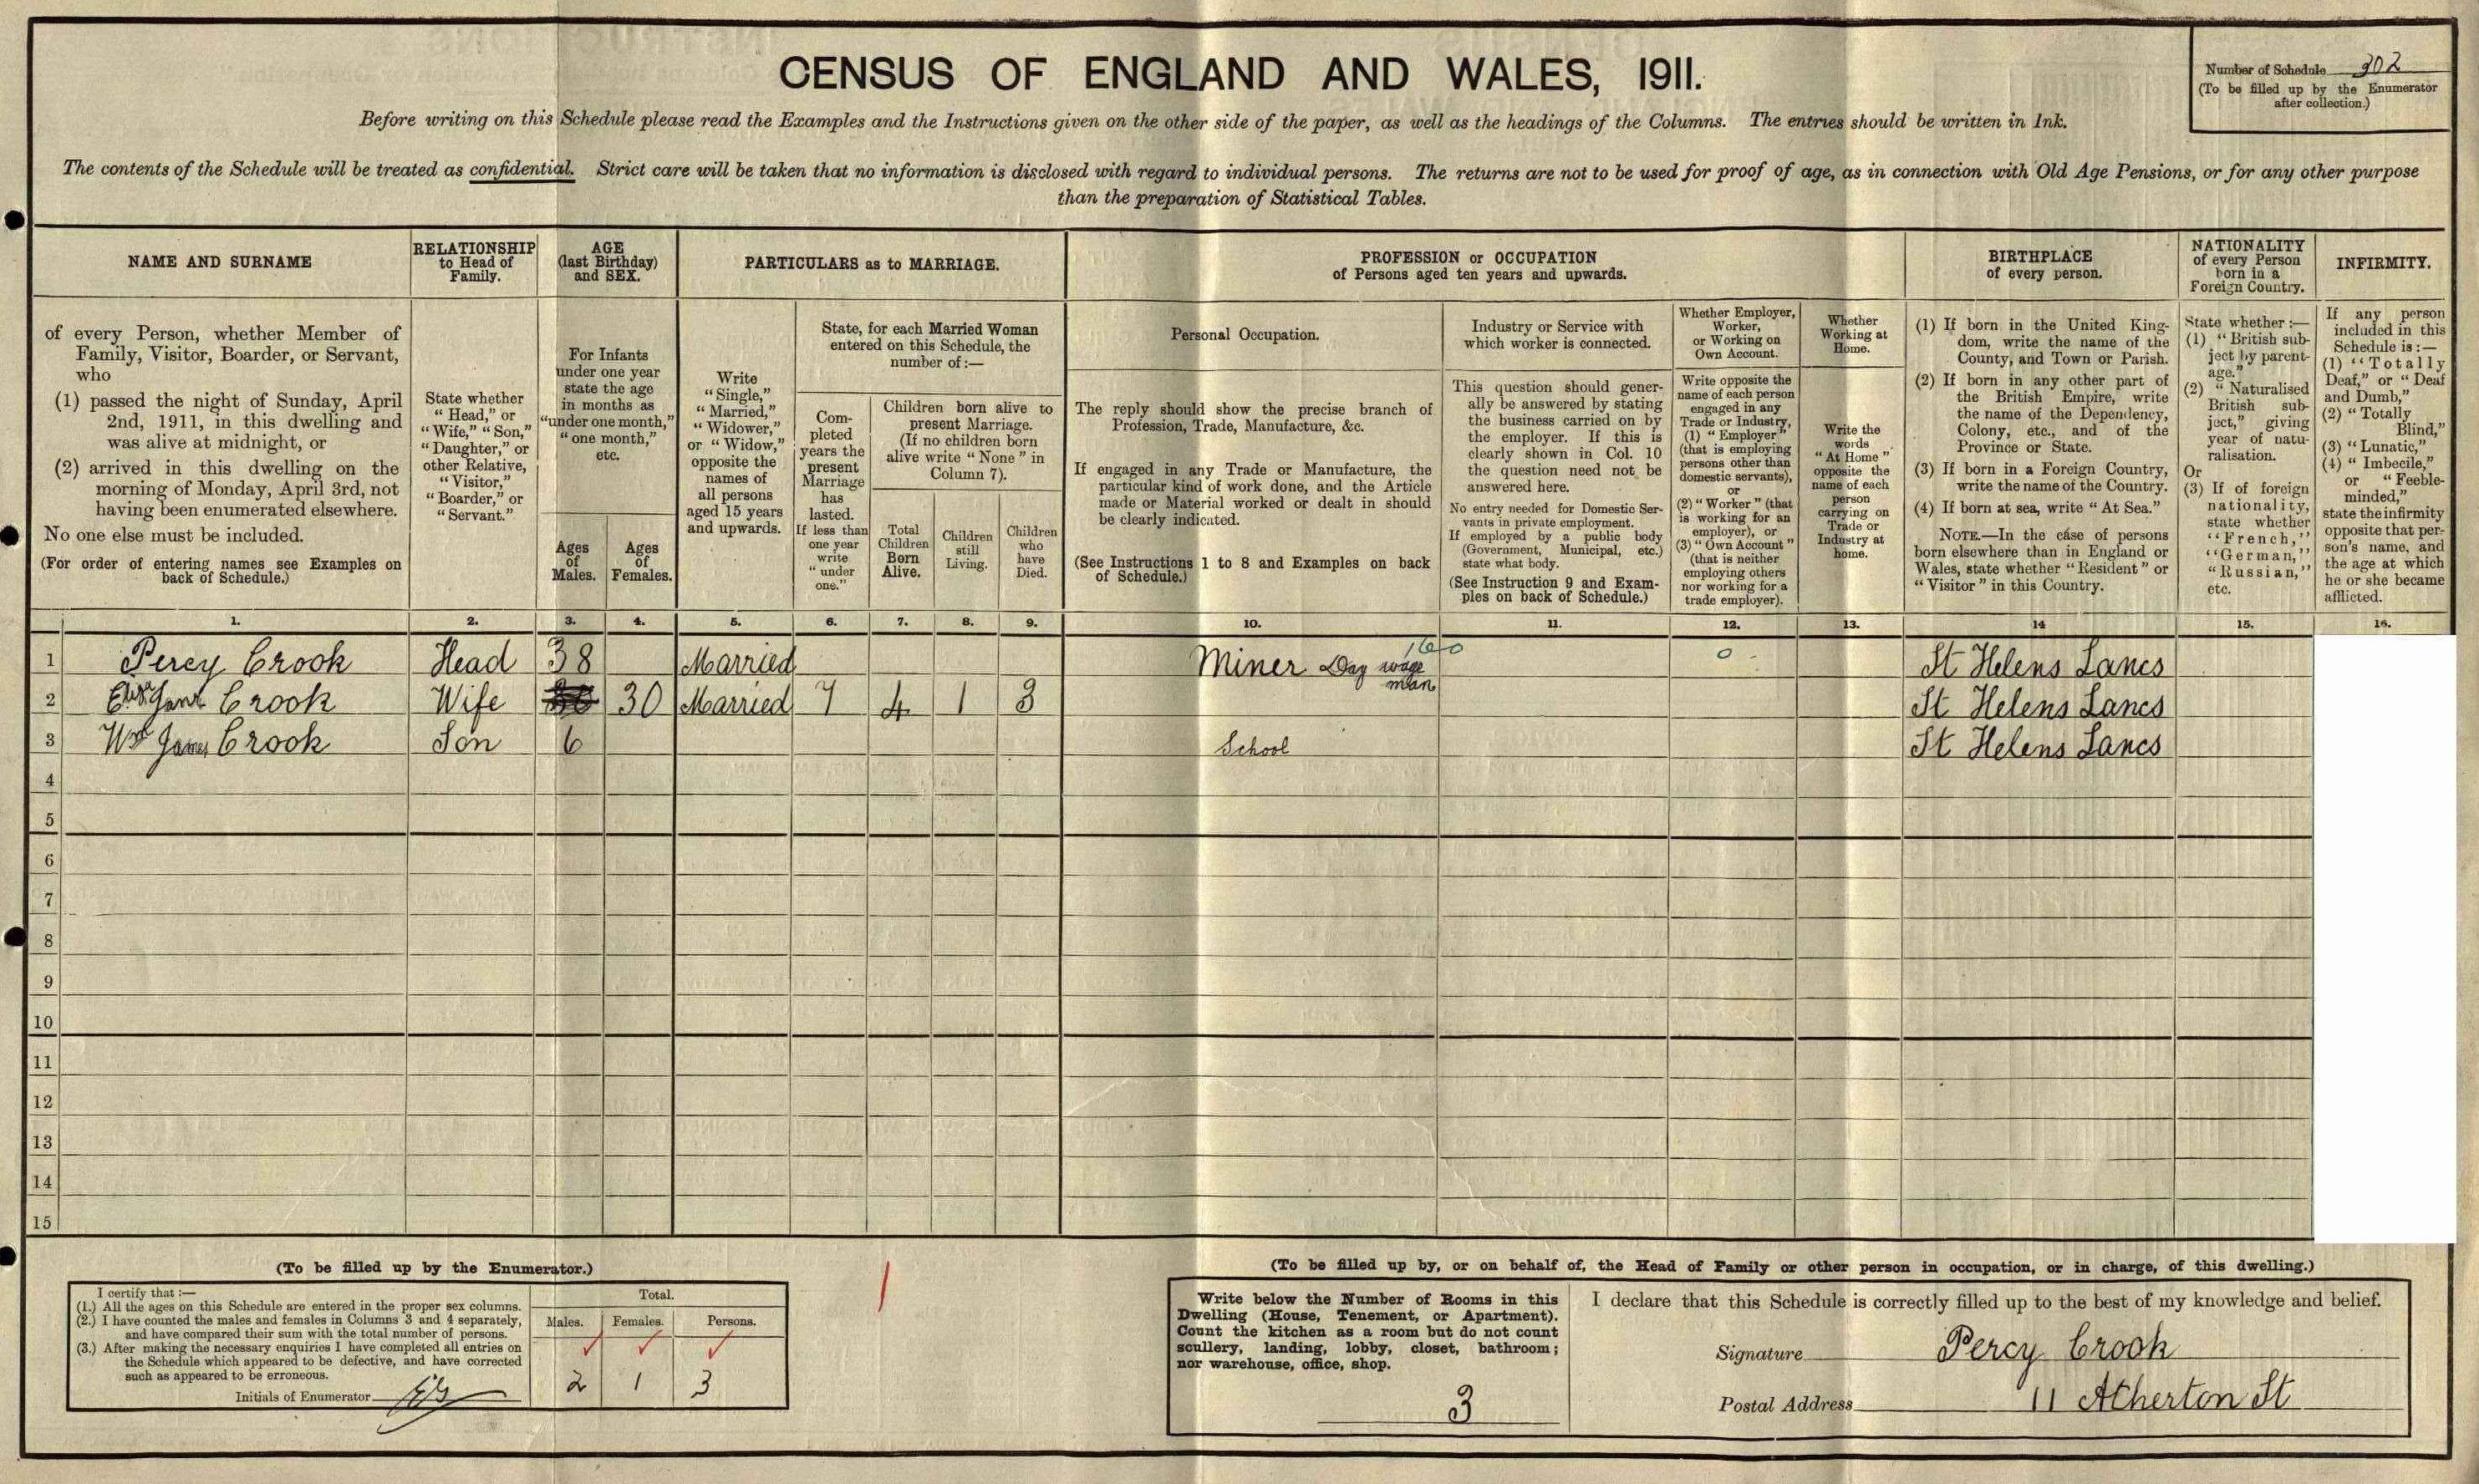 CENSUS OF ENGLAND AND WALES, 1911.
Number of Schedule 302
(To be filled up by the Enumerator
after collection.)
Before writing on this Schedule please read the Examples and the Instructions given on the other side of the paper, as well as the headings of the Columns. The entries should be written in Ink.
The contents of the Schedule will be treated as confidential. Strict care will be taken that no information is disclosed with regard to individual persons. The returns are not to be used for proof of age, as in connection with Old Age Pensions, or for any other purpose
than the preparation of Statistical Tables.
NAME AND SURNAME
of every Person, whether Member of
Family, Visitor, Boarder, or Servant,
who
(1) passed the night of Sunday, April
2nd, 1911, in this dwelling and
was alive at midnight, or
(2) arrived in this dwelling on the
morning of Monday, April 3rd, not
having been enumerated elsewhere.
No one else must be included.
(For order of entering names see Examples on
back of Schedule.)
RELATIONSHIP
to Head of
Family.
State whether
"Head," or
"Wife," "Son,"
"Daughter," or
other Relative,
"Visitor,"
"Boarder," or
"Servant."
AGE
(last Birthday)
and SEX.
For Infants
under one year
state the age
in months as
"under one month,"
"one month,"
etc.
Ages
of
Males.
Ages
of
Females.
PARTICULARS as to MARRIAGE.
Write
"Single,"
"Married,"
"Widower,"
or "Widow,"
opposite the
names of
all persons
aged 15 years
and upwards.
State, for each Married Woman
entered on this Schedule, the
number of:—
Com-
pleted
years the
present
Marriage
has
lasted.
If less than
one year
write
"under
one."
Children born alive to
present Marriage.
(If no children born
alive write "None" in
Column 7).
Total
Children
Born
Alive.
Children
still
Living.
Children
who
have
Died.
PROFESSION or OCCUPATION
of Persons aged ten years and upwards.
Personal Occupation.
The reply should show the precise branch of
Profession, Trade, Manufacture, &c.
If engaged in any Trade or Manufacture, the
particular kind of work done, and the Article
made or Material worked or dealt in should
be clearly indicated.
(See Instructions 1 to 8 and Examples on back
of Schedule.)
Industry or Service with
which worker is connected.
This question should gener-
ally be answered by stating
the business carried on by
the employer. If this is
clearly shown in Col. 10
the question need not be
answered here.
No entry needed for Domestic Ser-
vants in private employment.
If employed by a public body
(Government, Municipal, etc.)
state what body.
(See Instruction 9 and Exam-
ples on back of Schedule.)
Whether Employer,
Worker,
or Working on
Own Account.
Write opposite the
name of each person
engaged in any
Trade or Industry,
(1) "Employer"
(that is employing
persons other than
domestic servants),
or
(2) "Worker" (that
is working for an
employer), or
(3) "Own Account"
(that is neither
employing others
nor working for a
trade employer).
Whether
Working at
Home.
Write the
words
"At Home"
opposite the
name of each
person
carrying on
Trade or
Industry at
home.
BIRTHPLACE
of every person.
(1) If born in the United King-
dom, write the name of the
County, and Town or Parish.
(2) If born in any other part of
the British Empire, write
the name of the Dependency,
Colony, etc., and of the
Province or State.
(3) If born in a Foreign Country,
write the name of the Country.
(4) If born at sea, write "At Sea."
NOTE.—In the case of persons
born elsewhere than in England or
Wales, state whether "Resident" or
"Visitor" in this Country.
NATIONALITY
of every Person
born in a
Foreign Country.
State whether:—
(1) "British sub-
ject by parent-
age."
(2) "Naturalised
British sub-
ject," giving
year of natu-
ralisation.
Or
(3) If of foreign
nationality,
state whether
"French,"
"German,"
"Russian,"
etc.
INFIRMITY.
If any person
included in this
Schedule is:—
(1) "Totally
Deaf," or "Deaf
and Dumb,"
(2) "Totally
Blind,"
(3) "Lunatic,"
(4) "Imbecile,"
or "Feeble-
minded,"
state the infirmity
opposite that per-
son's name, and
the age at which
he or she became
afflicted.
1. 2. 3. 4. 5. 6. 7. 8. 9. 10. 11. 12. 13. 14 15. 16.
1 Percy Crook Head 38 Married Miner Day wage man 160 0 - St Helens Lancs
2 Eliz Jane Crook Wife 30 Married 7 4 1 3 St Helens Lancs
3 Wm James Crook Son 6 School St Helens Lancs
4
5
6
7
8
9
10
11
12
13
14
15
(To be filled up by the Enumerator.)
I certify that:—
(1.) All the ages on this Schedule are entered in the proper sex columns.
(2.) I have counted the males and females in Columns 3 and 4 separately,
and have compared their sum with the total number of persons.
(3.) After making the necessary enquiries I have completed all entries on
the Schedule which appeared to be defective, and have corrected
such as appeared to be erroneous.
Initials of Enumerator
Total.
Males. Females. Persons.
2 1 3
(To be filled up by, or on behalf of, the Head of Family or other person in occupation, or in charge, of this dwelling.)
Write below the Number of Rooms in this
Dwelling (House, Tenement, or Apartment).
Count the kitchen as a room but do not count
scullery, landing, lobby, closet, bathroom;
nor warehouse, office, shop.
3
I declare that this Schedule is correctly filled up to the best of my knowledge and belief.
Signature Percy Crook
Postal Address 11 Atherton St